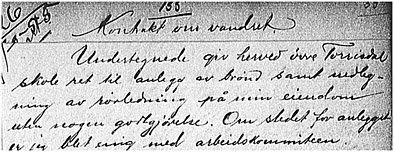 155
Kontrakt om vandret.
Undertegnede gir herved övre Torrisdal
skole ret til anlegg av brönd samt nedleg-
ning av rörledning på min eiendom
uten nogen godtgjörelse. Om stedet for anlegget
er jeg blet enig med arbeidskommiteen.